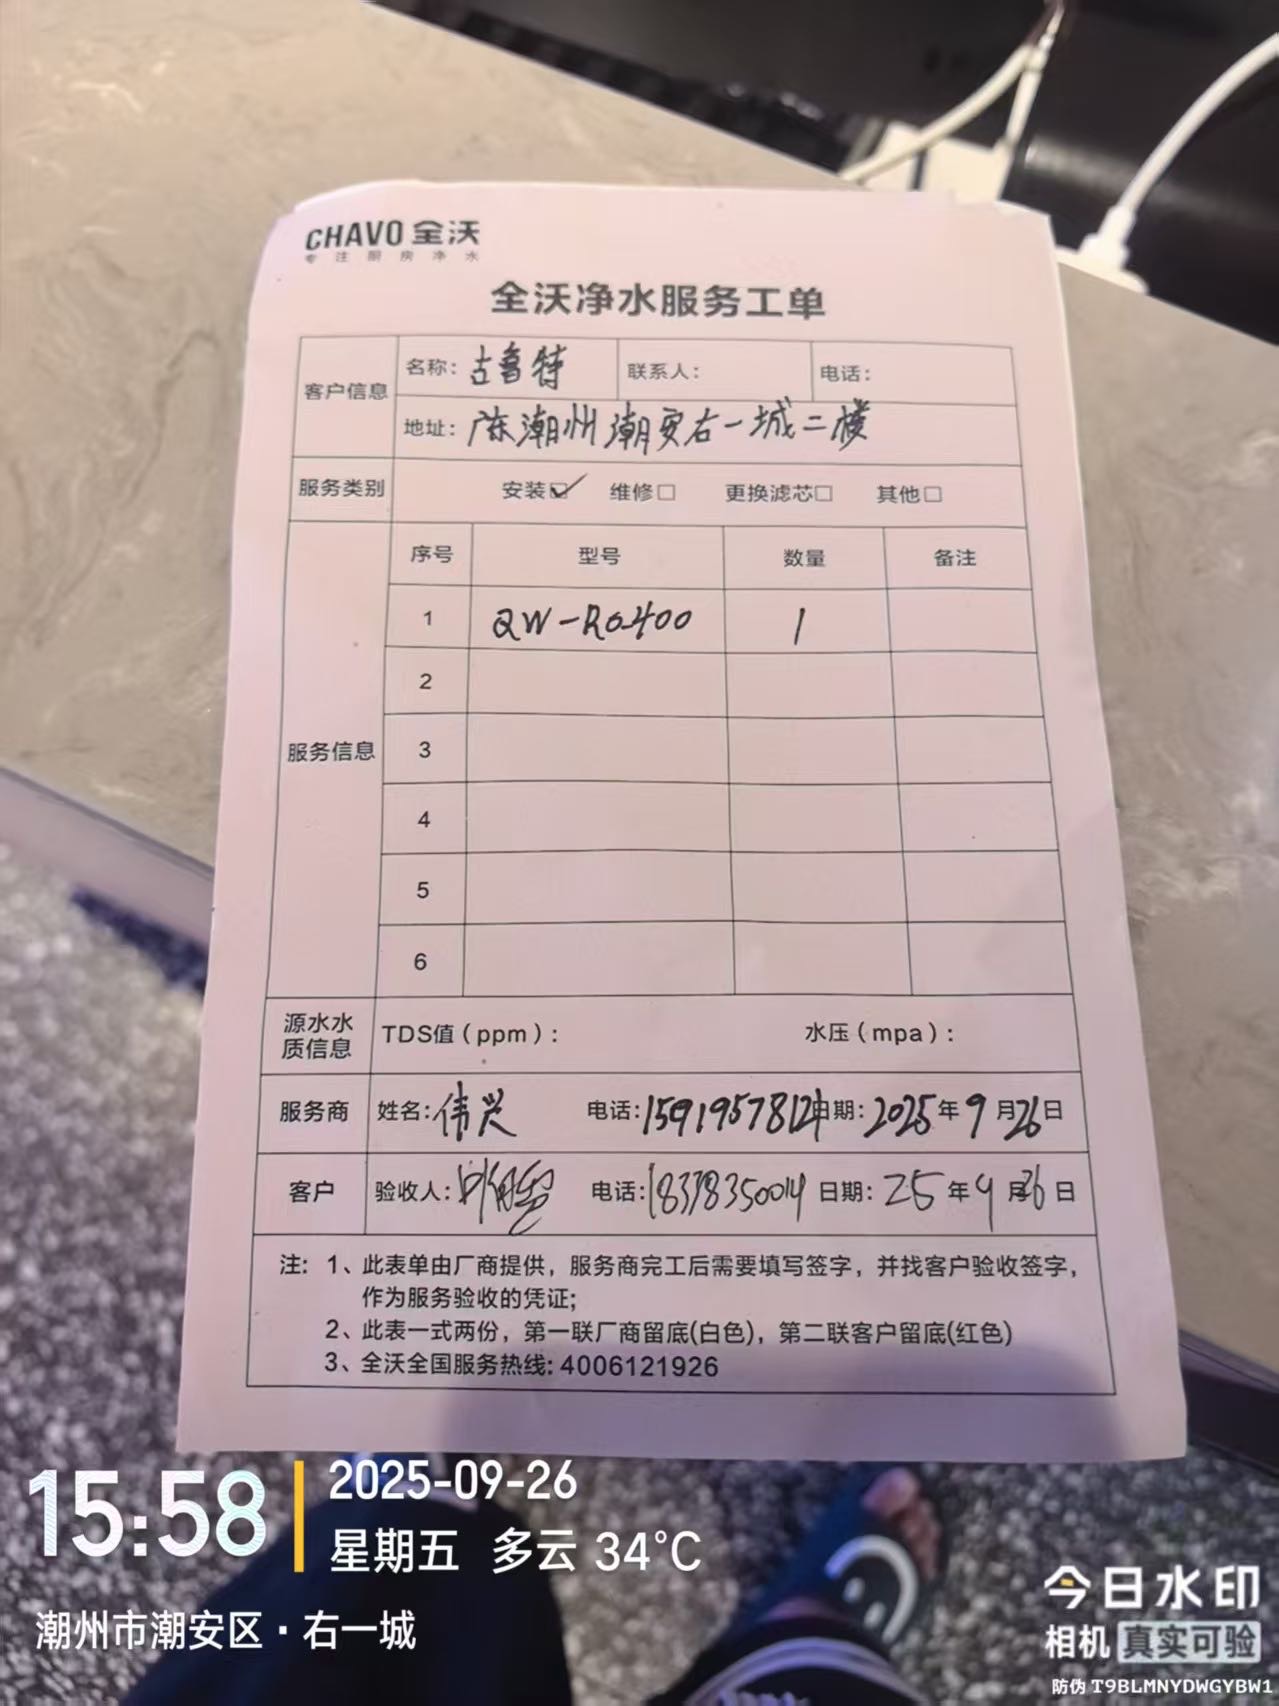 CHAVO 全沃
专注厨房净水
全沃净水服务工单
客户信息 名称：古鲁特 联系人： 电话：
地址：广东潮州潮安右一城二楼
服务类别 安装☑ 维修□ 更换滤芯□ 其他□
服务信息 序号 型号 数量 备注
1 QW-RO400 1
2
3
4
5
6
源水水质信息 TDS值（ppm）： 水压（mpa）：
服务商 姓名：伟兴 电话： 日期：2025年9月26日
客户 验收人： 电话：18378350014 日期：25年9月26日
注：1、此表单由厂商提供，服务商完工后需要填写签字，并找客户验收签字，
作为服务验收的凭证；
2、此表一式两份，第一联厂商留底(白色)，第二联客户留底(红色)
3、全沃全国服务热线：4006121926
15:58
2025-09-26
星期五 多云 34°C
潮州市潮安区·右一城
今日水印
相机 真实可验
防伪 T9BLMNYDWGYBW1